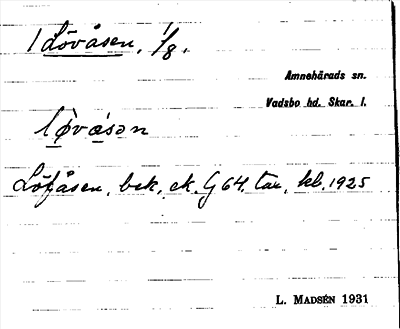 1 Lövåsen, 1/8.
Amnehärads sn.
Vadsbo hd. Skar. l.
lø̀vásən
Löfåsen, bek. ek. G 64. tax, kb. 1925
L. MADSÉN 1931